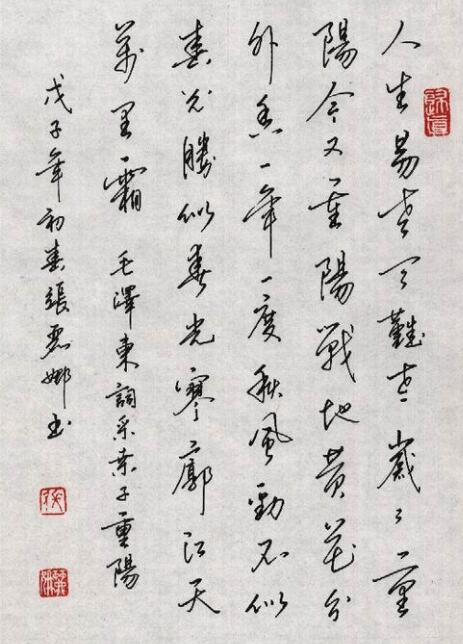 人生易老天難老歲々重
陽今又重陽戰地黃花分
外香一年一度秋風勁不似
春光勝似春光寥廓江天
萬里霜 毛澤東詞采桑子重陽
戊子年初春張麗娜书